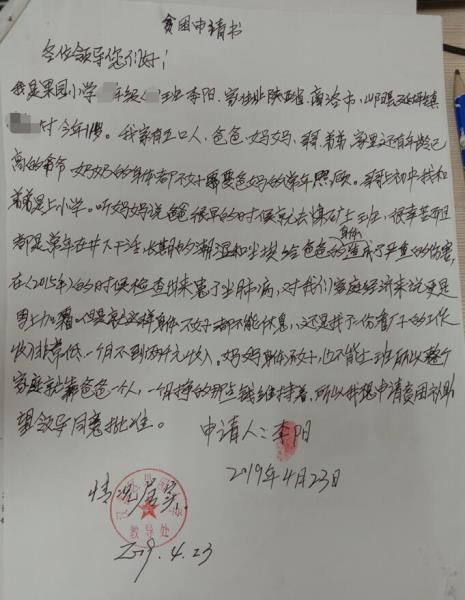 贫困申请书
各位领导您们好！
我是果园小学 年级 班李阳.家住址陕西省.商洛市,山阳县延坪镇
村今年11岁。我家有五口人,爸爸,妈妈,哥,弟弟,家里还有年龄已
高的爷爷奶奶的身体都不好需要爸妈的常年照顾。哥哥上初中我和
弟弟是上小学。听妈妈说爸爸很早的时候就去煤矿上班,很辛苦而且
都是常年在井下干活长期的潮湿和尘埃给爸爸的身体造成了严重的伤害,
在(2015年)的时候检查出来患了尘肺病,对我们家庭经济来说更是
雪上加霜,但是就这样身体不好都不能休息,还是找了一份看厂子的工作
收入非常低一个月不到两千元收入。妈妈身体不好,也不能上班所以整个
家庭就靠爸爸一个人,一月挣的那点钱维持着,所以我想申请贫困补助
望领导同意批准。
申请人:李阳
2019年4月23日
情况属实.
教导处
2019.4.23